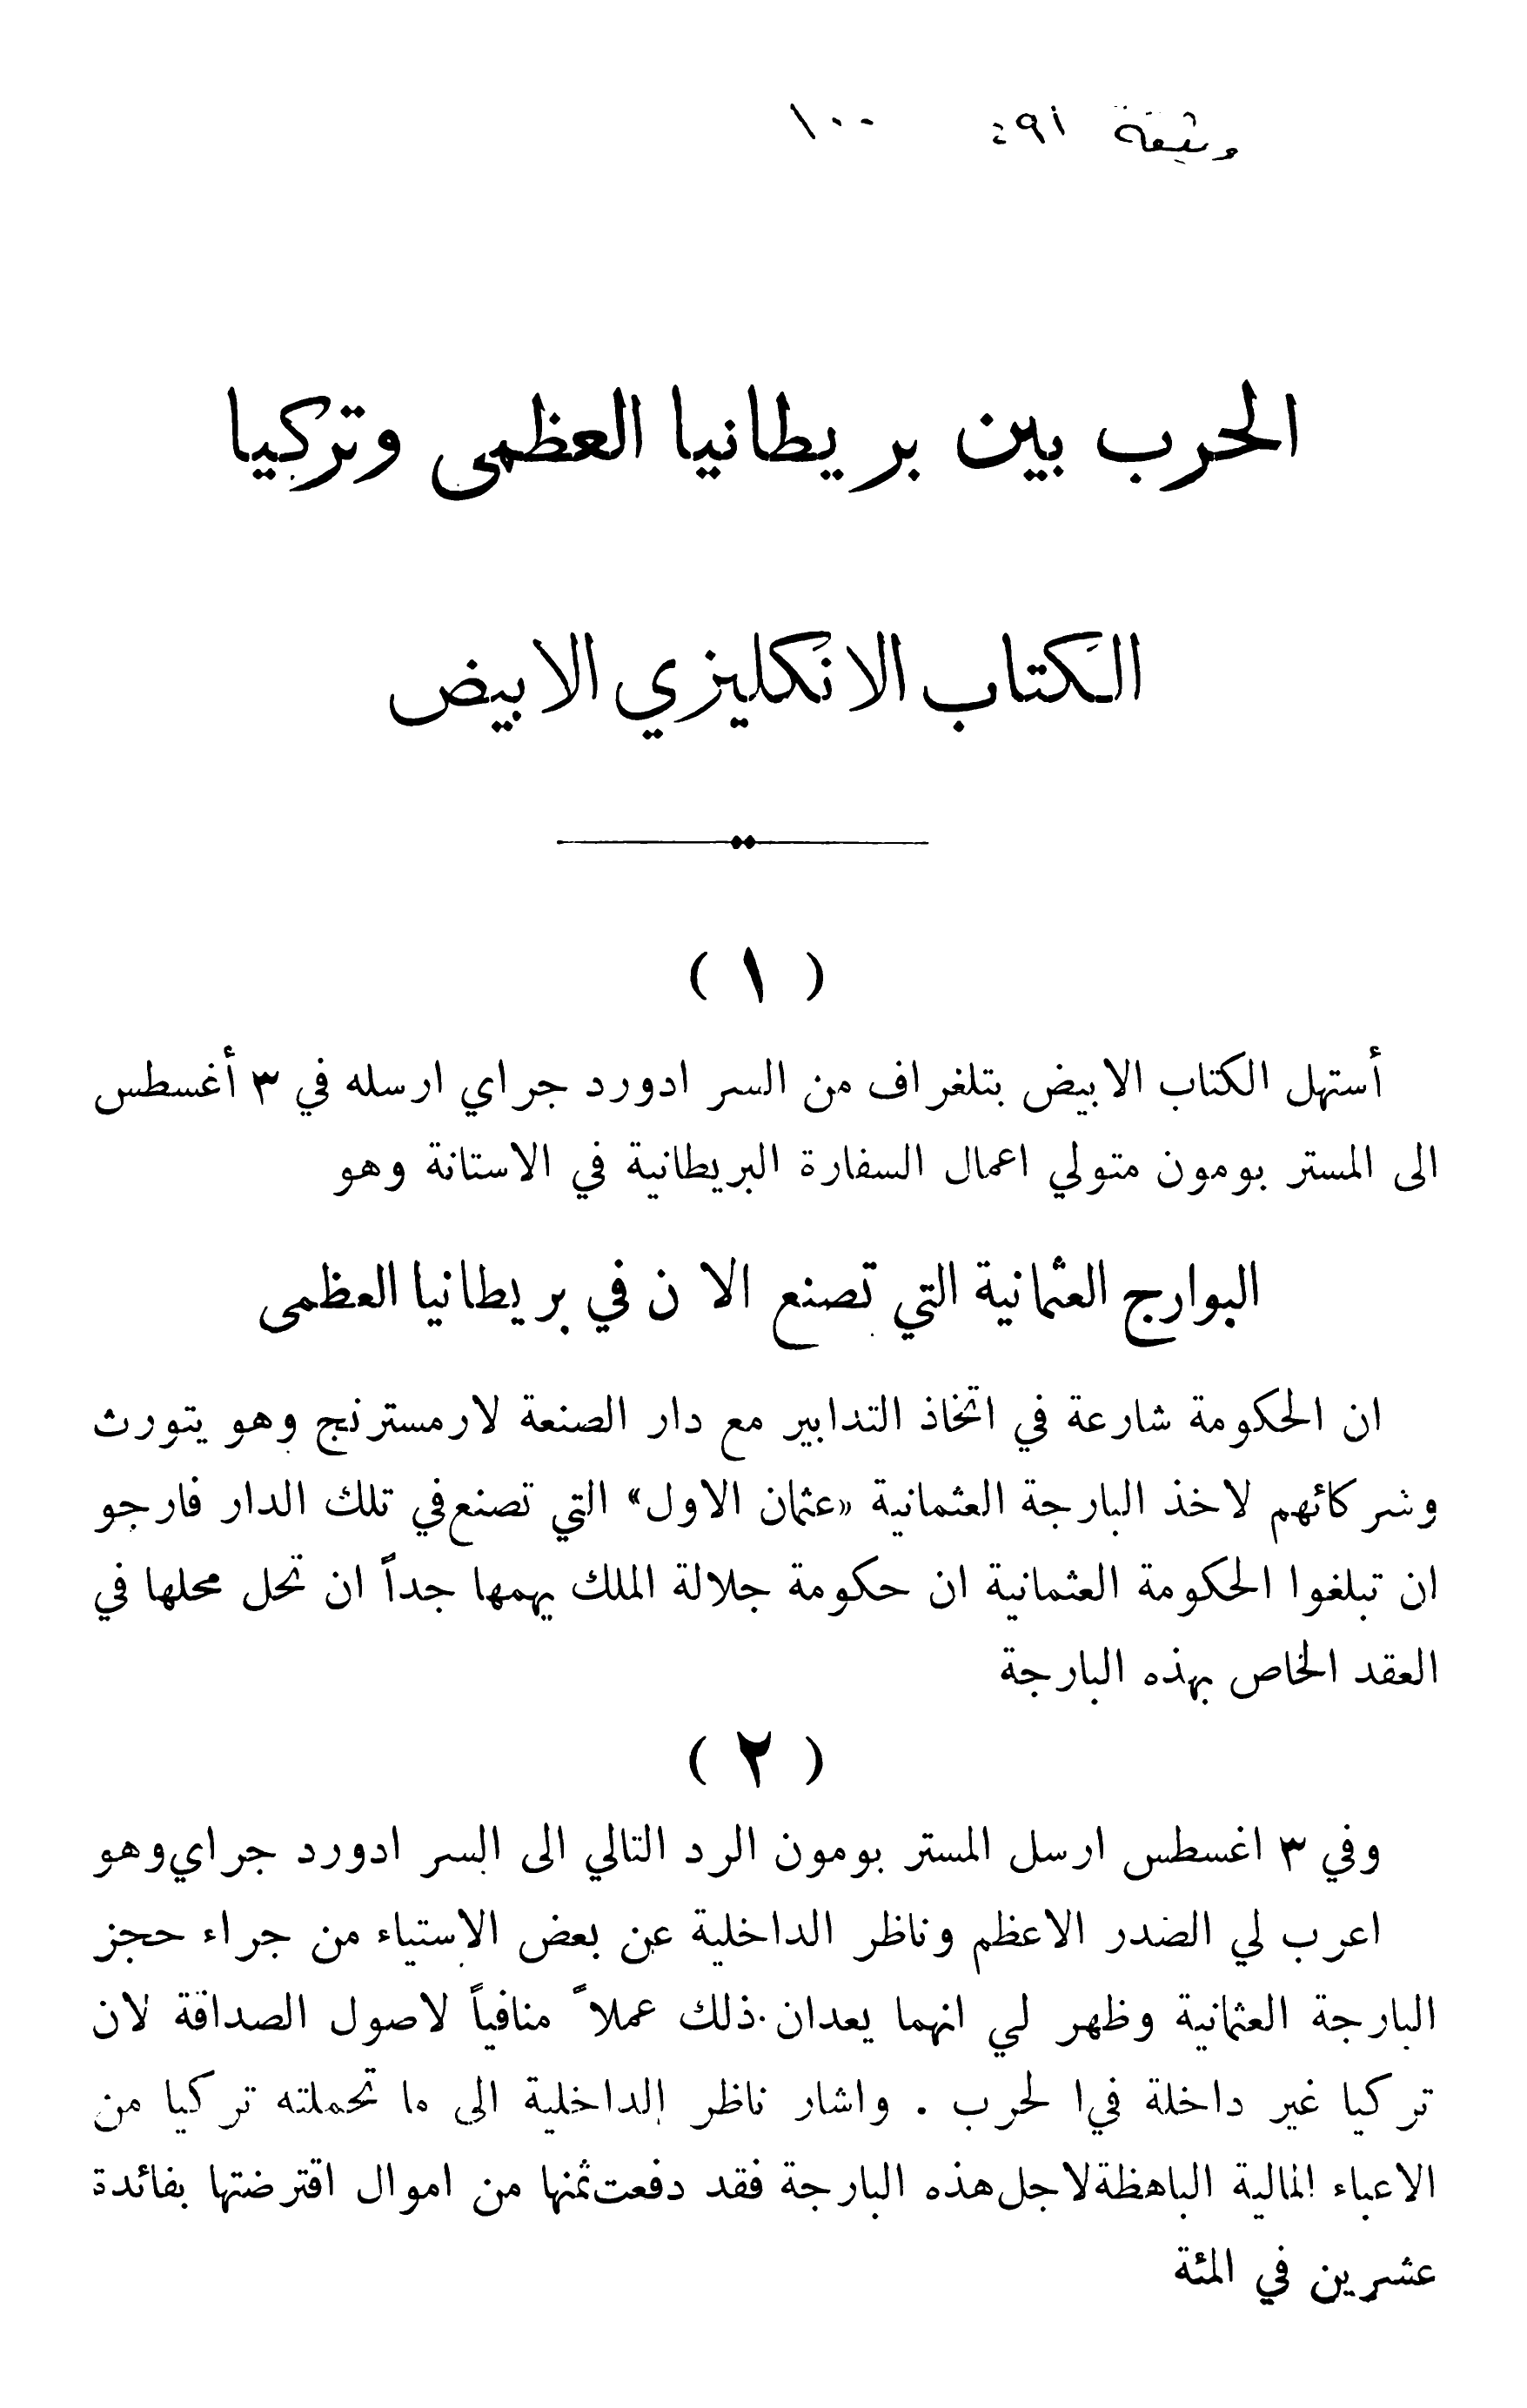 وثيقة ٤٩١ ١٠٠
الحرب بين بريطانيا العظمى وتركيا
الكتاب الانكليزي الابيض
( ١ )
أستهل الكتاب الابيض بتلغراف من السر ادورد جراي ارسله في ٣ أغسطس
الى المستر بومون متولي اعمال السفارة البريطانية في الاستانة وهو
البوارج العثمانية التي تصنع الان في بريطانيا العظمى
ان الحكومة شارعة في اتخاذ التدابير مع دار الصنعة لارمسترنج وهو يتورث
وشركائهم لاخذ البارجة العثمانية «عثمان الاول» التي تصنع في تلك الدار فارجو
ان تبلغوا الحكومة العثمانية ان حكومة جلالة الملك يهمها جداً ان تحل محلها في
العقد الخاص بهذه البارجة
( ٢ )
وفي ٣ اغسطس ارسل المستر بومون الرد التالي الى السر ادورد جراي وهو
اعرب لي الصدر الاعظم وناظر الداخلية عن بعض الاستياء من جراء حجز
البارجة العثمانية وظهر لي انهما يعدان ذلك عملاً منافياً لاصول الصداقة لان
تركيا غير داخلة في الحرب . واشار ناظر الداخلية الى ما تحملته تركيا من
الاعباء المالية الباهظة لاجل هذه البارجة فقد دفعت ثمنها من اموال اقترضتها بفائدة
عشرين في المئة